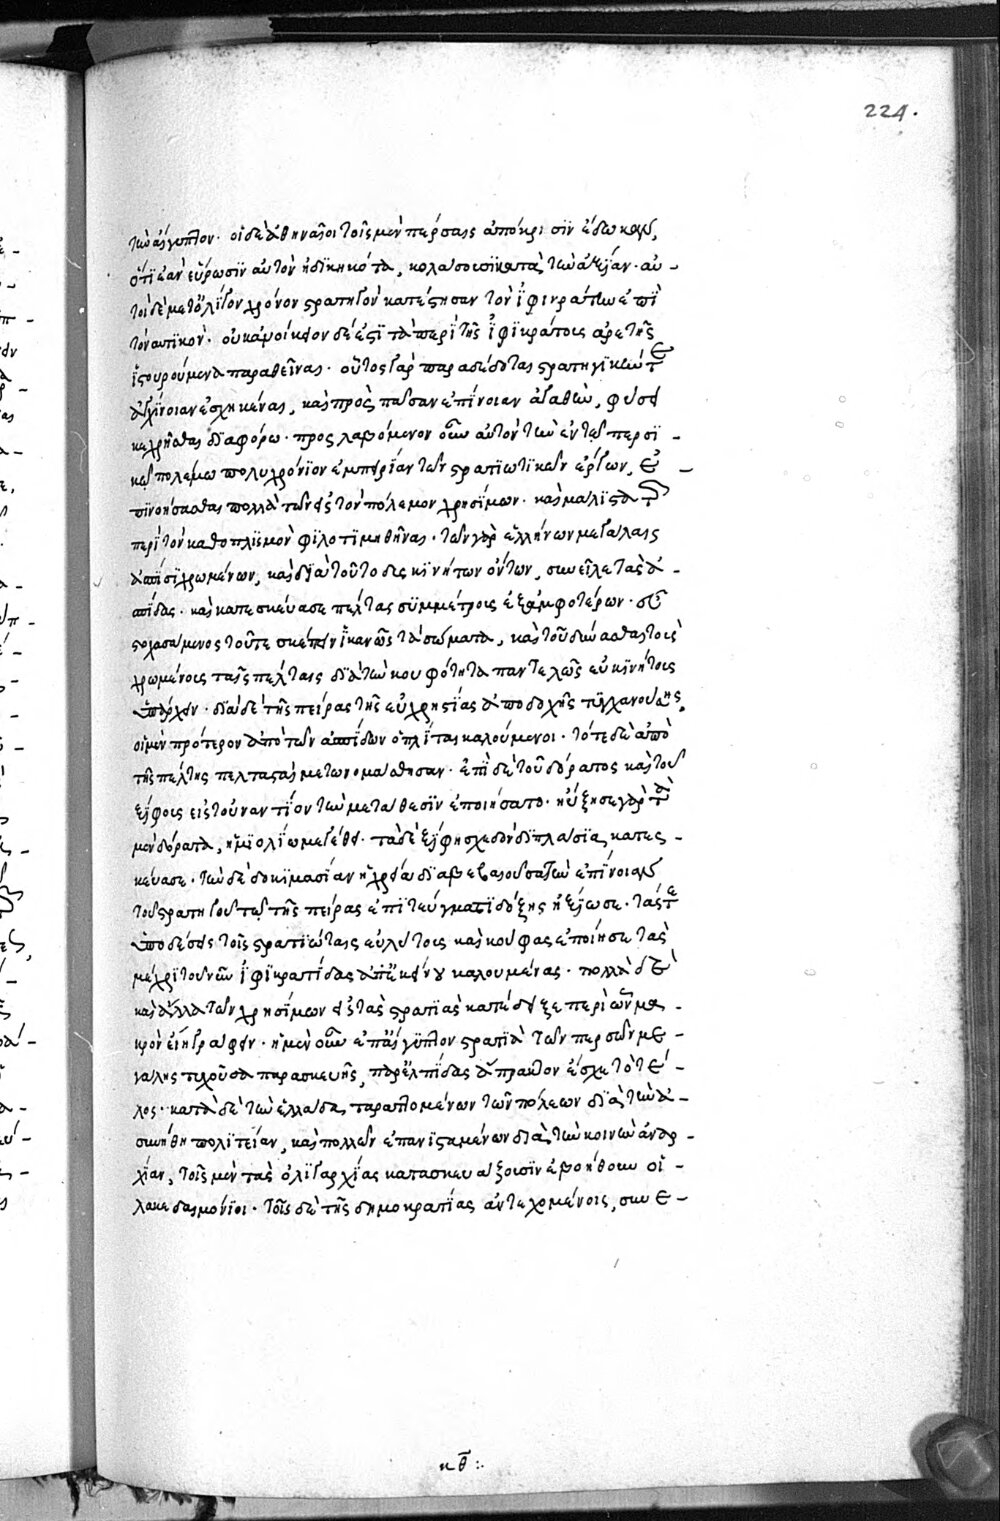 224.
τὴν αἴγυπτον· οἱ δὲ ἀθηναῖοι τοῖς μὲν πέρσαις ἀπόκρισϊν ἔδωκαν,
ὅτϊ ἐὰν εὕρωσϊν αὐτὸν ἠδϊκηκότα, κολάσουσϊ κατὰ τὴν ἀξίαν· αὐ-
τοὶ δὲ μετ' ὀλίγον χρόνον στρατηγὸν κατέστησαν τὸν ἰφικράτην ἐπὶ
τὸ ναυτικόν· οὐκ ἀνοίκειον δέ ἐστϊ τὰ περὶ τῆς ἰφϊκράτους ἀρετῆς
ἱστορούμενα παραθεῖναι· οὗτος γὰρ παραδέδοται στρατηγϊκὴν τε
ἀγχίνοιαν ἐσχηκέναι, καὶ πρὸς πᾶσαν ἐπίνοιαν ἀγαθὴν, φύσει
κεχρῆσθαι διαφόρω· προσλαβόμενον οὖν αὐτὸν τὴν ἐν τῶ περσϊ-
κῶ πολέμω πολυχρόνϊον ἐμπειρίαν τῶν στρατϊωτϊκῶν ἔργων, ἐ-
πϊνοήσασθαι πολλὰ τῶν εἰς τὸν πόλεμον χρησίμων· καὶ μάλϊστα τὰ
περὶ τὸν καθοπλϊσμὸν φϊλοτϊμηθῆναι· τῶν γὰρ ἑλλήνων μεγάλαις
ἀσπίσϊ χρωμένων, καὶ δϊὰ τοῦτο δυσκϊνήτων ὄντων, συνεῖλε τὰς ἀ-
σπίδας· καὶ κατεσκεύασε πέλτας συμμέτρους ἐξ ἀμφοτέρων· εὖ
στοχασάμενος τοῦ τε σκέπειν ἱκανῶς τὰ σώματα, καὶ τοῦ δύνασθαι τοὺς
χρωμένους ταῖς πέλταις δϊὰ τὴν κουφότητα παντελῶς εὐκϊνήτους
ὑπάρχειν· διὰ δὲ τῆς πείρας τῆς εὐχρηστίας ἀποδοχῆς τυγχανούσης.
οἱ μὲν πρότερον ἀπὸ τῶν ἀσπίδων ὁπλῖται καλούμενοι· τότε δὲ ἀπὸ
τῆς πέλτης πελτασταὶ μετωνομάσθησαν· ἐπὶ δὲ τοῦ δόρατος καὶ τοῦ
ξίφους εἰς τοὐναντίον τὴν μετάθεσϊν ἐποιήσατο· ηὔξησε γὰρ τὰ
μὲν δόρατα, ἡμϊολίω μεγέθει· τὰ δὲ ξίφη σχεδὸν δϊπλάσϊα κατεσ-
κεύασε· τὴν δὲ δοκϊμασίαν ἡ χρεία δϊαβεβαιοῦσα τὴν ἐπίνοιαν
τοῦ στρατηγοῦ τῶ τῆς πείρας ἐπϊτεύγματϊ δόξης ἠξίωσε· τάς τε
ὑποδέσεις τοῖς στρατϊώταις εὐλύτους καὶ κούφας ἐποίησε τὰς
μέχρϊ τοῦ νῦν ἰφϊκρατίδας ἀπ' ἐκείνου καλουμένας· πολλὰ δὲ
καὶ ἄλλα τῶν χρησίμων εἰς τὰς στρατϊὰς κατέδειξε περὶ ὧν μα-
κρὸν εἴη γράφειν· ἡ μὲν οὖν ἐπ' αἴγυπτον στρατϊὰ τῶν περσῶν με-
γάλης τυχοῦσα παρασκευῆς, παρ' ἐλπίδας ἄπρακτον ἔσχε τὸ τέ-
λος· κατὰ δὲ τὴν ἑλλάδα, ταραττομένων τῶν πόλεων δϊὰ τὴν ἀ-
συνήθη πολϊτείαν, καὶ πολλῶν ἐπανϊσταμένων διὰ τὴν κοινὴν ἀναρ-
χίαν, τοῖς μὲν τὰς ὀλϊγαρχίας κατασκευάζουσϊν ἐβοήθουν οἱ-
λακεδαιμόνϊοι· τοῖς δὲ τῆς δημοκρατίας ἀντεχομένοις, συνε-
κθ :